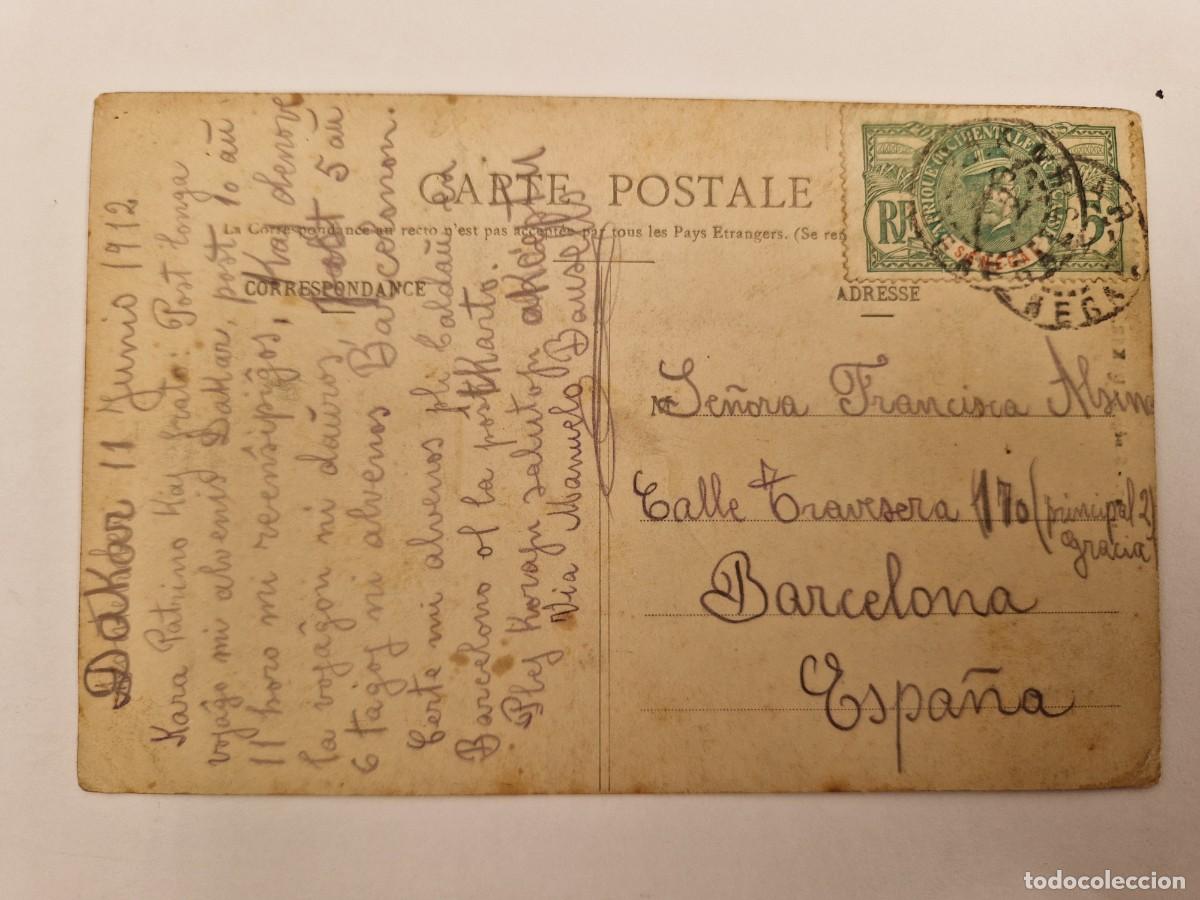 CARTE POSTALE
La Correspondance au recto n'est pas acceptée par tous les Pays Etrangers. (Se ren
CORRESPONDANCE
ADRESSE
Dakker 11 Junio 1912
Kara Patrino kaj frato: Post longa
vojaĝo mi alvenis Dakar, post 10 aŭ
11 horo mi reenŝipiĝos, kaj denove
la vojaĝon mi daŭros, post 5 aŭ
6 tagoj mi alvenos Barcelonon.
Certe mi alvenos pli baldaŭ en
Barcelono ol la poŝtkarto.
Plej korajn salutojn akceptu
Via Manuelo Bausells
AFRIQUE OCCIDENTALE
RF
SÉNÉGAL
5
M
Señora Francisca Alsina
Calle Travesera 170 (principal 2)
Gracia
Barcelona
España
todocoleccion